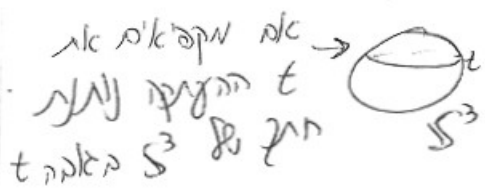 אם מקפיאים את → t
t ההעתקה נותנת
חתך של S³ בגובה t
S³